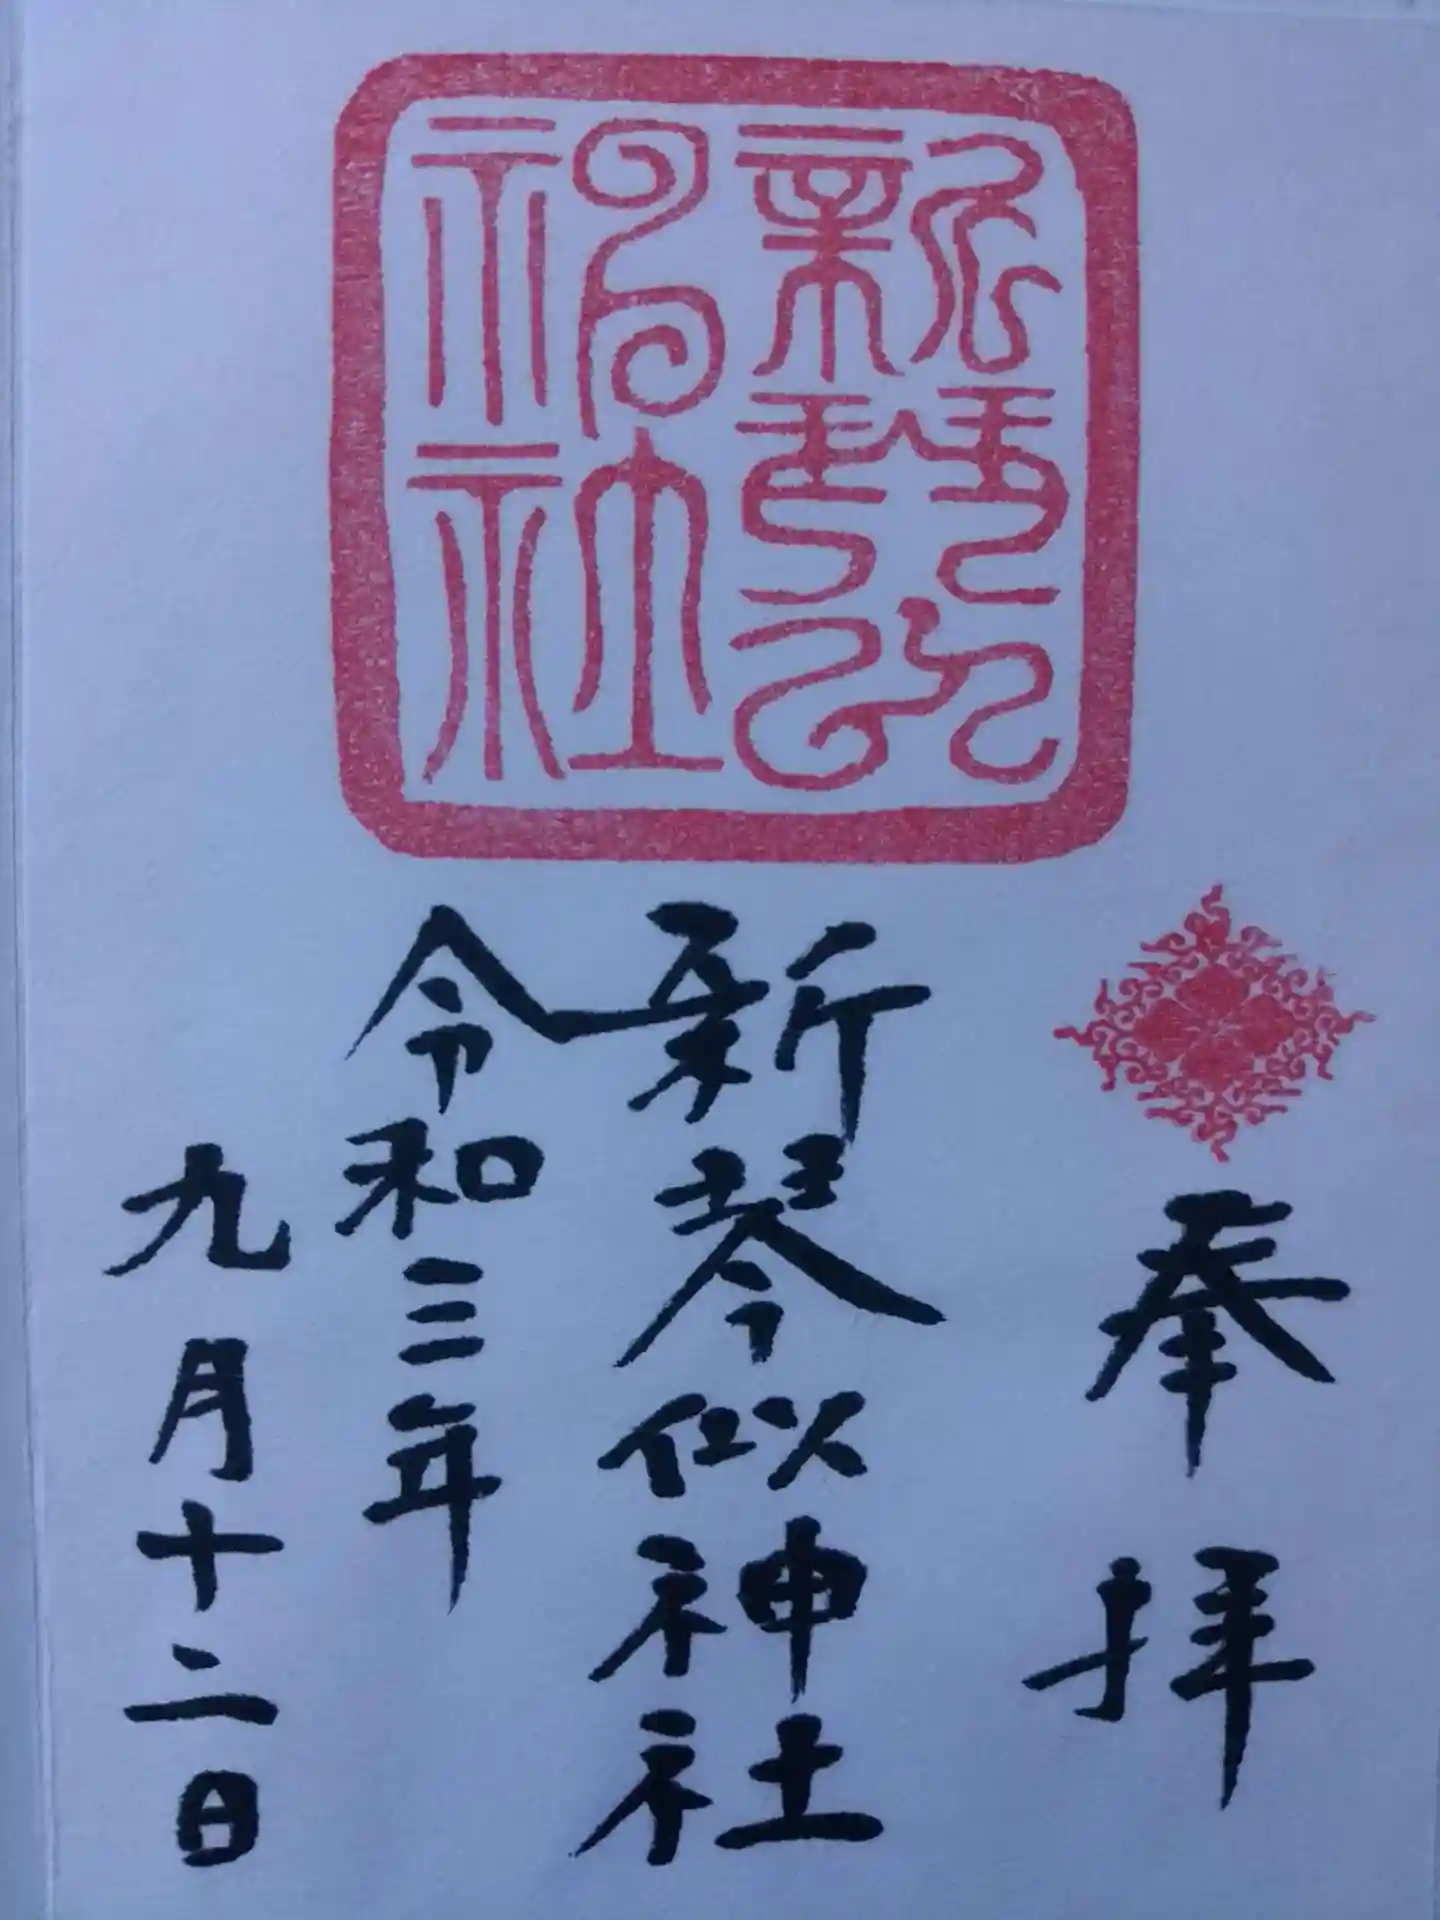 新琴似
神社
奉拝
新琴似神社
令和三年
九月十二日